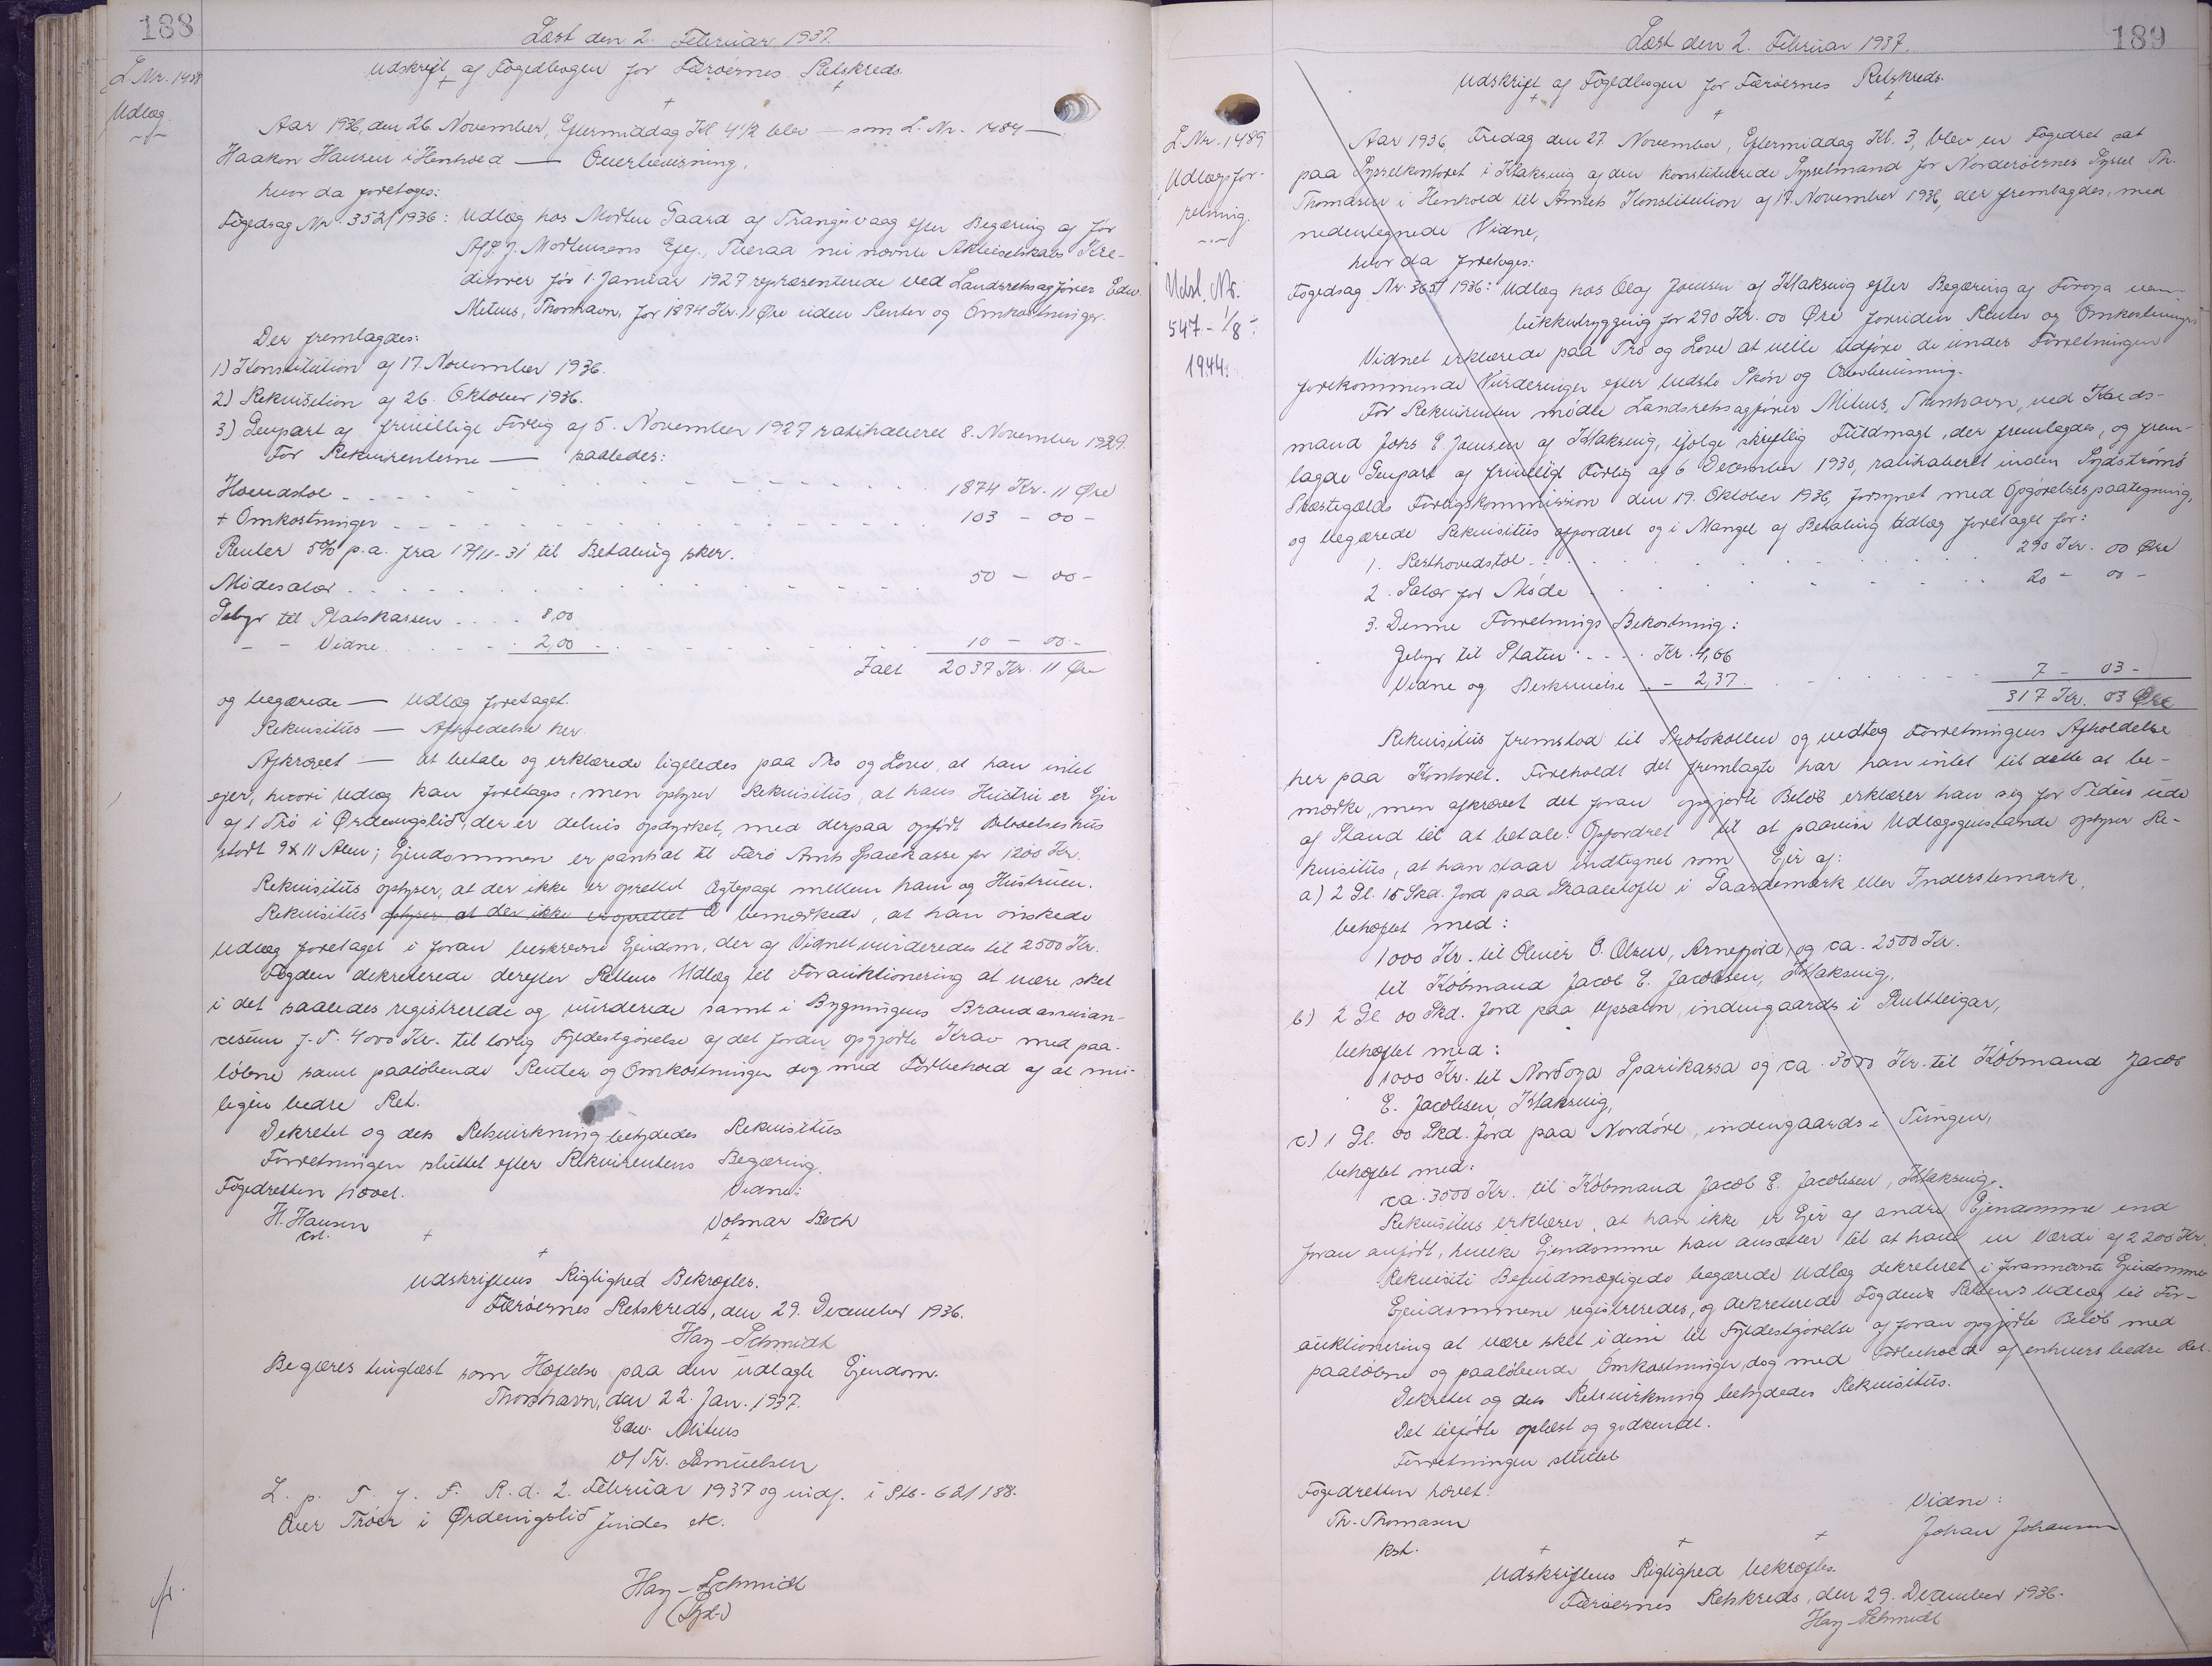 188
Læst den 2. Februar 1937.
L. Nr. 1488
Udlæg.
Udskrift af Fogedbogen for Færøernes Retskreds.
Aar 1936, den 26. November, Eftermiddag Kl. 4 1/2 blev — som L. Nr. 1484 —
Haakon Hansen i Henhold — Overbevisning,
hvor da foretoges:
Fogedsag Nr. 352/1936: Udlæg hos Morten Gaard af Trangisvaag efter Begæring af for
A/S. J. Mortensens Eftf., Tveraa nu nævnte Aktieselskabs Kre-
ditorer før 1. Januar 1927 repræsenterede ved Landsretssagfører Edw.
Mitens, Thorshavn, for 1874 Kr. 11 Øre uden Renter og Omkostninger.
Der fremlagdes:
1) Konstitution af 17. November 1936.
2) Rekvisition af 26. Oktober 1936.
3) Genpart af frivillige Forlig af 5. November 1927 ratihaberet 8. November 1929.
For Rekvirenterne — saaledes:
Hovedstol 1874 Kr. 11 Øre
+ Omkostninger 103 - 00 -
Renter 5% p.a. fra 17/11-31 til Betaling sker.
Mødesalær 50 - 00 -
Gebyr til Statskassen 8,00
- - Vidne 2,00 10 - 00 -
Ialt 2037 Kr. 11 Øre
og begærede — Udlæg foretaget.
Rekvisitus — Afholdelse her.
Afkrævet — at betale og erklærede ligeledes paa Tro og Love, at han intet
ejer, hvori Udlæg kan foretages, men oplyser Rekvisitus, at hans Hustru er Ejer
af 1 Trø i Ørdavigslið, der er delvis opdyrket, med derpaa opført Beboelseshus
stort 9 x 11 Alen; Ejendommen er pantsat til Færø Amts Sparekasse for 1200 Kr.
Rekvisitus oplyser, at der ikke er oprettet Ægtepagt mellem ham og Hustruen.
Rekvisitus oplyser at der ikke er oprettet Æ bemærkede, at han ønskede
Udlæg foretaget i foran beskrevne Ejendom, der af Vidnet vurderedes til 2500 Kr.
Fogden dekreterede derefter Rettens Udlæg til Forauktionering at være sket
i det saaledes registrerede og vurderede samt i Bygningens Brandassuran-
cesum f. T. 4000 Kr. til lovlig Fyldestgørelse af det foran opgjorte Krav med paa-
løbne samt paaløbende Renter og Omkostninger dog med Forbehold af al mu-
ligen bedre Ret.
Dekretet og dets Retsvirkning betydedes Rekvisitus
Forretningen sluttet efter Rekvirentens Begæring.
Fogedretten hævet. Vidne:
H. Hansen Volmar Bech
cst.
Udskriftens Rigtighed Bekræftes.
Færøernes Retskreds, den 29. December 1936.
Hay-Schmidt
Begæres tinglæst som Hæftelse paa den udlagte Ejendom.
Thorshavn, den 22. Jan. 1937.
Edw. Mitens
v/ Tr. Samuelsen
L. p. T. f. F. R. d. 2. Februar 1937 og indf. i Ptb. 62/188.
Over Trøer i Ørdavigslið findes etc.
Hay-Schmidt
189
Læst den 2. Februar 1937.
L. Nr. 1489
Udlægsfor-
retning.
Udsl. Nr.
547 - 1/8 -
1944.
Udskrift af Fogedbogen for Færøernes Retskreds.
Aar 1936, Fredag den 27. November, Eftermiddag Kl. 3, blev en Fogedret sat
paa Sysselkontoret i Klaksvig af den konstituerede Sysselmand for Norderøernes Syssel Th.
Thomasen i Henhold til Amtets Konstitution af 17. November 1936, der fremlagdes, med
nedentegnede Vidne,
hvor da foretoges:
Fogedsag Nr. 365/1936: Udlæg hos Olaf Joensen af Klaksvig efter Begæring af Føroya vanlukkutrygging for 290 Kr. 00 Øre foruden Renter og Omkostninger
Vidnet erklærede paa Tro og Love at ville udføre de under Forretningen
forekommende Vurderinger efter bedste Skøn og Overbevisning.
For Rekvirenten mødte Landsretssagfører Mitens, Thorshavn, ved Kaads-
mand Johs E. Joensen af Klaksvig, ifølge skriftlig Fuldmagt, der fremlagdes, og frem-
lagde Genpart af frivilligt Forlig af 6 December 1930, ratihaberet inden Sydstrømø
Præstegælds Forligskommission den 19. Oktober 1936, forsynet med Opgørelsespaategning,
og begærede Rekvisitus opfordret og i Mangel af Betaling Udlæg foretaget for:
1. Resthovedstol 290 Kr. 00 Øre
2. Salær for Møde 20 - 00 -
3. Denne Forretnings Bekostning:
Gebyr til Staten Kr. 4,66
Vidne og Beskrivelse - 2,37 7 - 03 -
317 Kr. 03 Øre
Rekvisitus fremstod til Protokollen og vedtog Forretningens Afholdelse
her paa Kontoret. Foreholdt det fremlagte har han intet til dette at be-
mærke, men afkrævet det foran opgjorte Beløb erklærer han sig for Tiden ude
af Stand til at betale. Opfordret til at paavise Udlægsgenstande oplyser Re-
kvisitus, at han staar indtegnet som Ejer af:
a) 2 Gl. 15 Skd. Jord paa Skaaletofte i Gaardemark eller Inderstemark,
behæftet med:
1000 Kr. til Oliver O. Olsen, Arnefjord, og ca. 2500 Kr.
til Købmand Jacob E. Jacobsen, Klaksvig.
b) 2 Gl. 00 Skd. Jord paa Upsalon, indengaards i Stuttleigar,
behæftet med:
1000 Kr. til Norðoya Sparikassa og ca. 3000 Kr. til Købmand Jacob
E. Jacobsen, Klaksvig,
c) 1 Gl. 00 Skd. Jord paa Nordøre, indengaards i Tungen,
behæftet med:
ca. 3000 Kr. til Købmand Jacob E. Jacobsen, Klaksvig.
Rekvisitus erklærer, at han ikke er Ejer af andre Ejendomme end
foran anført, hvilke Ejendomme han ansætter til at have en Værdi af 2200 Kr.
Rekvisiti Befuldmægtigede begærede Udlæg dekreteret i forannævnte Ejendomme
Ejendommene registreredes, og dekreterede Fogden Rettens Udlæg til For-
auktionering at være sket i disse til Fyldestgørelse af foran opgjorte Beløb med
paaløbne og paaløbende Omkostninger, dog med Forbehold af enhvers bedre Ret.
Dekretet og dets Retsvirkning betydedes Rekvisitus.
Det tilførte oplæst og godkendt.
Forretningen sluttet
Fogedretten hævet. Vidne:
Th. Thomasen Johan Johansen
kst.
Udskriftens Rigtighed bekræftes.
Færøernes Retskreds, den 29. December 1936.
Hay-Schmidt